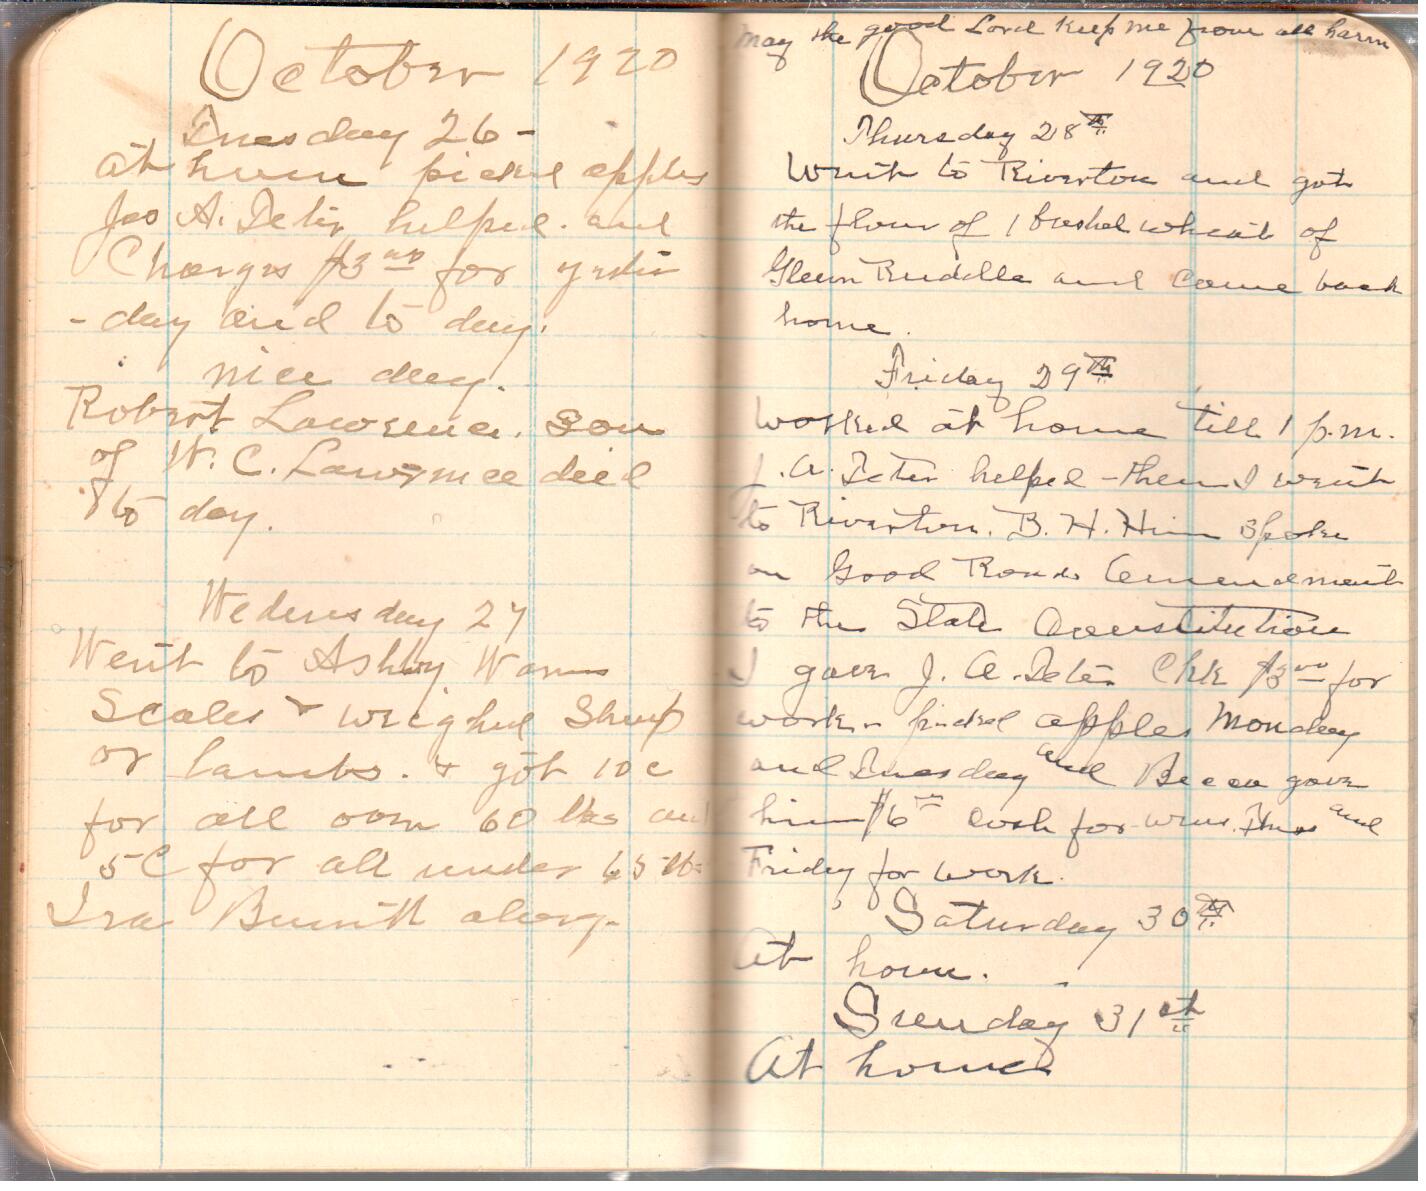 October 1920
Tuesday 26 -
at home picked apples
Jas A. Teter helped. and
Charges $3.00 for yester
-day and to day.
nice day.
Robert Lawrence. Son
of W. C. Lawrence died
to day.
Wednesday 27
Went to Ashby Warns
Scales & weighed Sheep
or lambs. & got 10c
for all over 60 lbs and
5C for all under lb
Ira along.
May the good Lord keep me from all harm
October 1920
Thursday 28th
Went to Riverton and got
the flour of 1 bushel wheat of
Glenn Ruddle and come back
home.
Friday 29th
Worked at home till 1 p.m.
J. A. Teter helped - then I went
to Riverton. B. H. Spoke
on Good Roads Amendment
to the State Constitution
I gave J. A. Teter Chk $3.00 for
work - picked apples Monday
and Tuesday and gave
him $6 cash for Thurs and
Friday for work.
Saturday 30th
At home.
Sunday 31th
At home